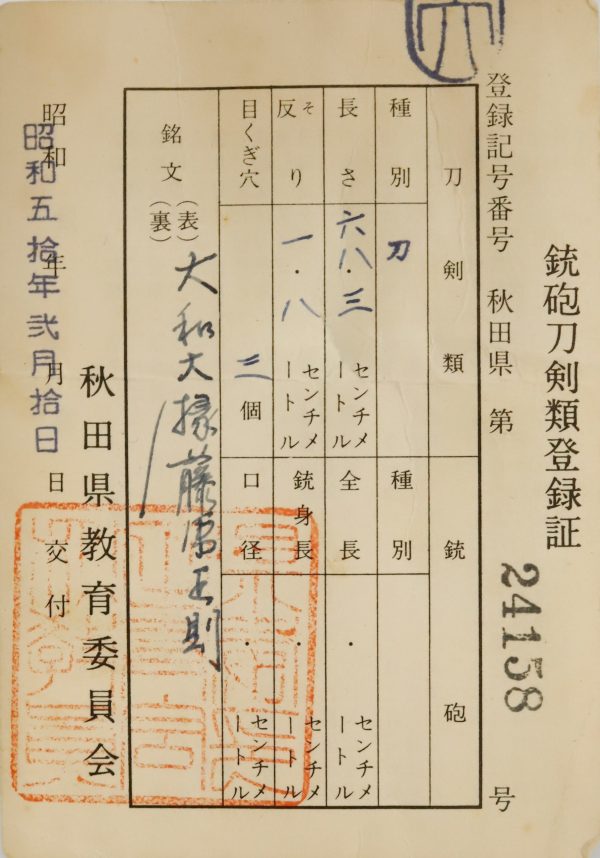 銃砲刀剣類登録証
登録記号番号 秋田県 第 24158 号
刀剣類 銃砲
種別 刀 種別
長さ 六八.三 センチメートル 全長 . センチメートル
反り そ 一.八 センチメートル 銃身長 . センチメートル
目くぎ穴 三 個 口径 . センチメートル
銘文 (表) 大和大掾藤原正則
(裏)
秋田県教育委員会
昭和 年 月 日 交付
昭和五拾年弐月拾日